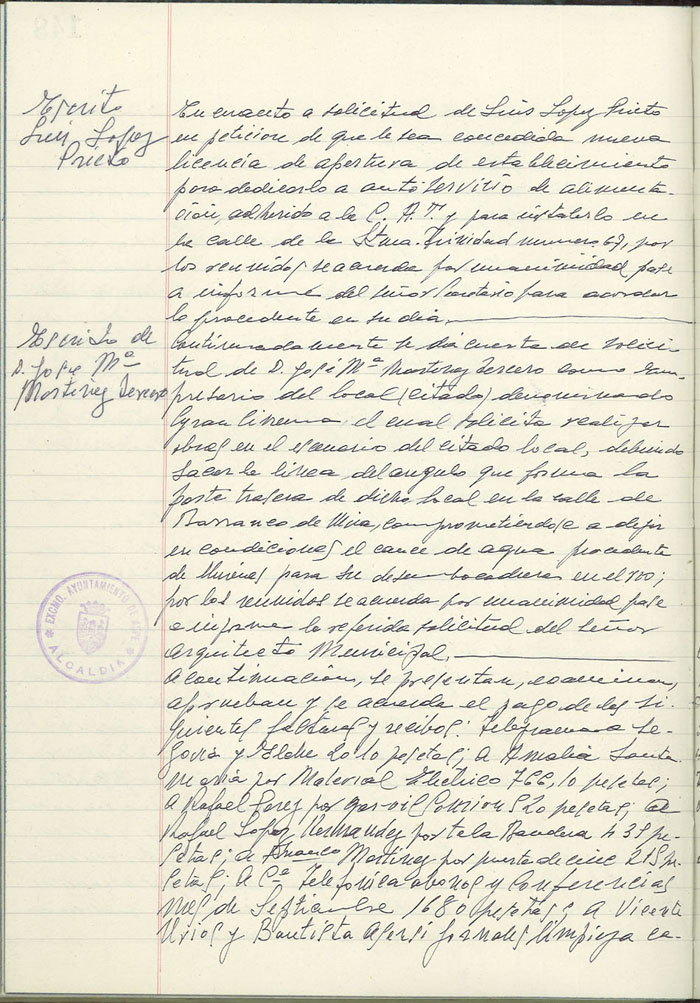 Escrito
Luis Lopez
Prieto
En cuanto a solicitud de Luis Lopez Prieto
en peticion de que le sea concedida nueva
licencia de apertura de establecimiento
para dedicarlo a autoservicio de alimenta-
ción, adherido a la C. A. T. y para instalarlo en
la calle de la Stma. Trinidad numero 67, por
los reunidos se acuerda por unanimidad pase
a informe del señor Secretario para acordar
lo procedente en su dia.
Escrito de
D. Jose Mª
Martinez Tercero
Continuadamente se dia cuenta de solici-
tud de D. José Mª Martinez Tercero como em-
presario del local (citado) denominado
Gran Cinema, el cual solicita realizar
obras en el escenario del citado local, debiendo
sacar la linea del angulo que forma la
parte trasera de dicho local en la calle de
Barranco de Mina, comprometiéndose a dejar
en condiciones el cauce de agua procedente
de para su desembocadura en el rio;
por los reunidos se acuerda por unanimidad pase
a informe la referida solicitud del señor
Arquitecto Municipal.
EXCMO. AYUNTAMIENTO DE ASPE
ALCALDIA
A continuación, se presentan, examinan,
aprueban y se acuerda el pago de las si-
guientes facturas y recibos: Telegramas a Se-
govia y Elche 20,10 pesetas; a Amalia Santa-
maria por Material Electrico 766,10 pesetas;
a Rafael Perez por 520 pesetas; a
Rafael Lopez Hernandez por tela Bandera 435 pe-
setas; a Martinez por puerta de cinc 215 pe-
setas; A Cª Telefonica abonos y Conferencias
mes de Septiembre 1680 pesetas; a Vicente
Urios y Bautista Asensi jornales limpieza ce-